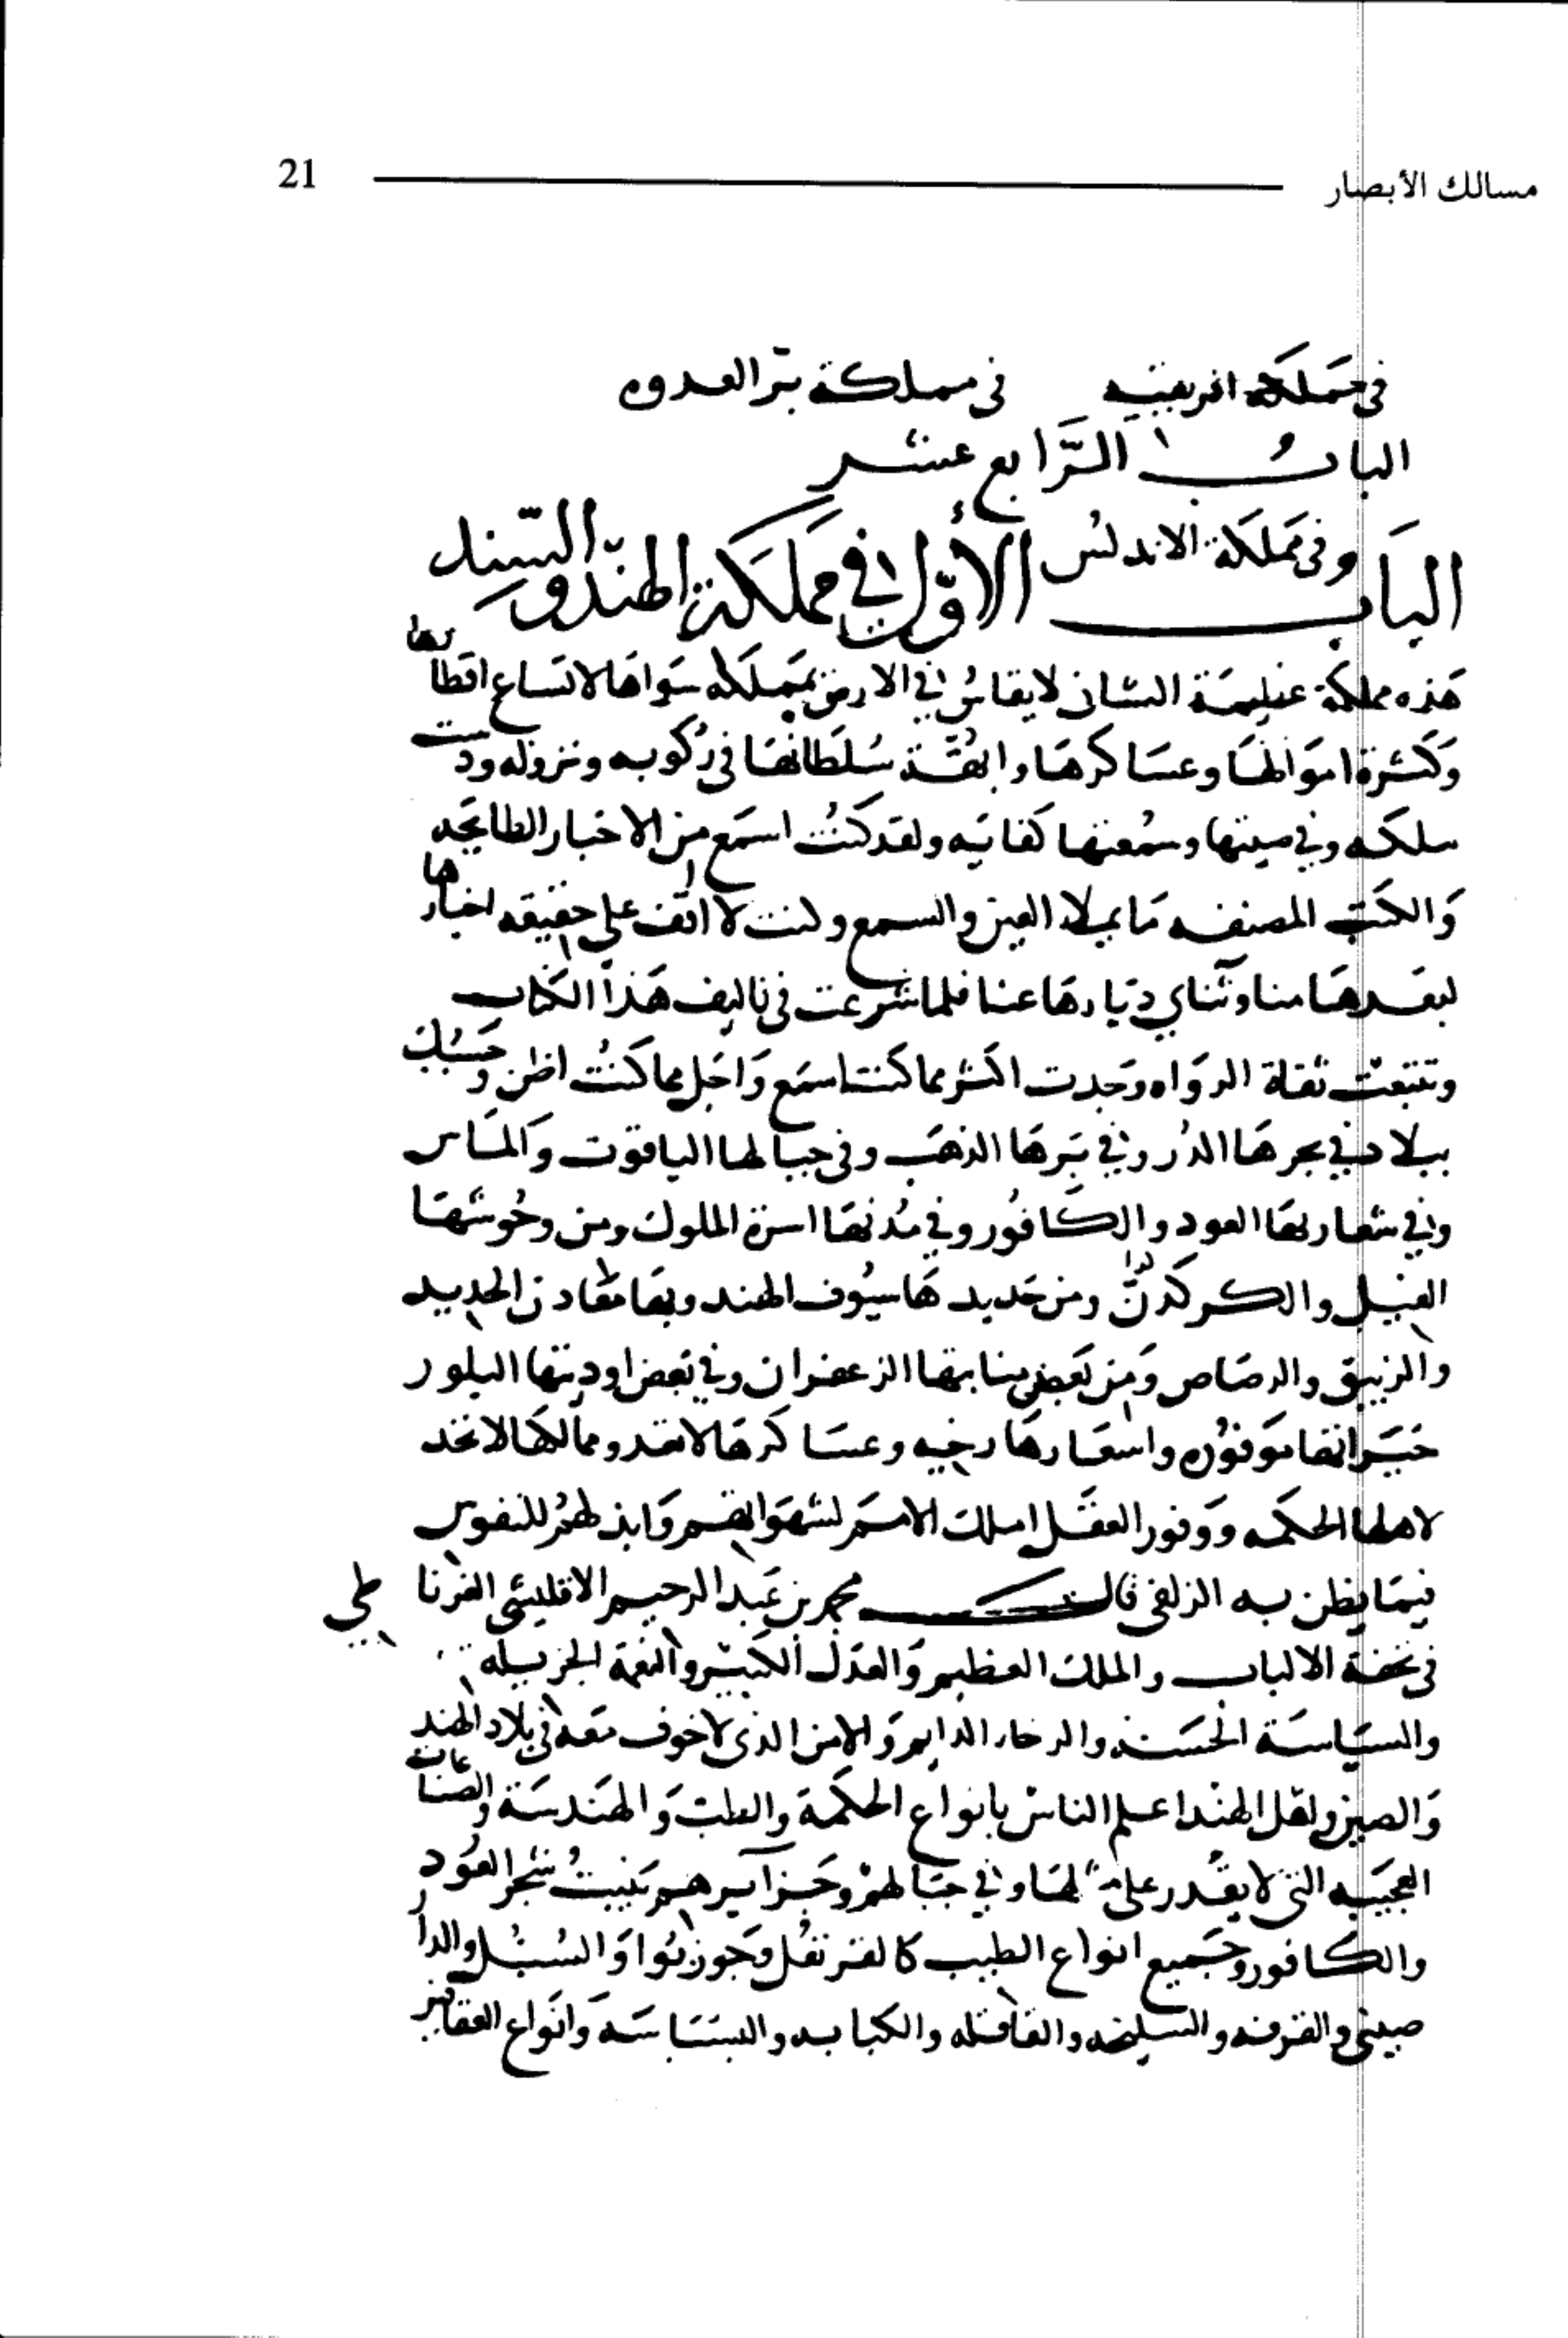 مسالك الأبصار 21
فى مملكة افريقيه فى مملكة بر العدوه
الباب الرابع عشر
وفى مملكة الاندلس
الباب الأول في مملكة الهند والسند
هذه مملكة عظيمة الشان لا يقاس في الارض بمملكة سواها لاتساع اقطارها
وكثرة اموالها وعساكرها وابهة سلطانها فى ركوبه ونزوله ودست
ملكه وفي صيتها وسمعتها كفايه ولقد كنت اسمع من الاخبار الطايحه
والكتب المصنفه ما يملا العين والسمع وكنت لا اقف على حقيقه اخبارها
لبعدها منا وتنايي ديارها عنا فلما شرعت فى تاليف هذا الكتاب
وتتبعت ثقاة الرواه وجدت اكثر مما كنت اسمع واجل مما كنت اظن وحسبك
ببلاد في بحرها الدر وفي برها الذهب وفى جبالها الياقوت والماس
وفي شعاربها العود والكافور وفي مدنها اسرة الملوك ومن وحوشها
الفيل والكركدن ومن حديدها سيوف الهند وبها معادن الحديد
والزيبق والرصاص ومن بعض منابتها الزعفران وفي بعض اوديتها البلور
خيراتها موفوره واسعارها رخيه وعساكرها لا تعد وممالكها لا تحد
لاهلها الحكمه ووفور العقل املك الامم لشهواتهم وابذلهم للنفوس
فيما يظن به الزلفى قال محمد بن عبد الرحيم الاقليشي الغرناطي
فى تحفة الالباب والملك العظيم والعدل الكبير والنعمة الجزيله
والسياسة الحسنه والرخاء الدايم والامن الذى لا خوف معه فى بلاد الهند
والصين واهل الهند اعلم الناس بانواع الحكمة والطب والهندسة والصناعات
العجيبه التى لا يقدر على مثلها وفي جبالهم وجزآيرهم ينبت شجر العود
والكافور وجميع انواع الطيب كالقرنفل وجوزبوا والسنبل والدار
صينى والقرفه والسليخه والقاقله والكبابه والبسباسه وانواع العقاقير